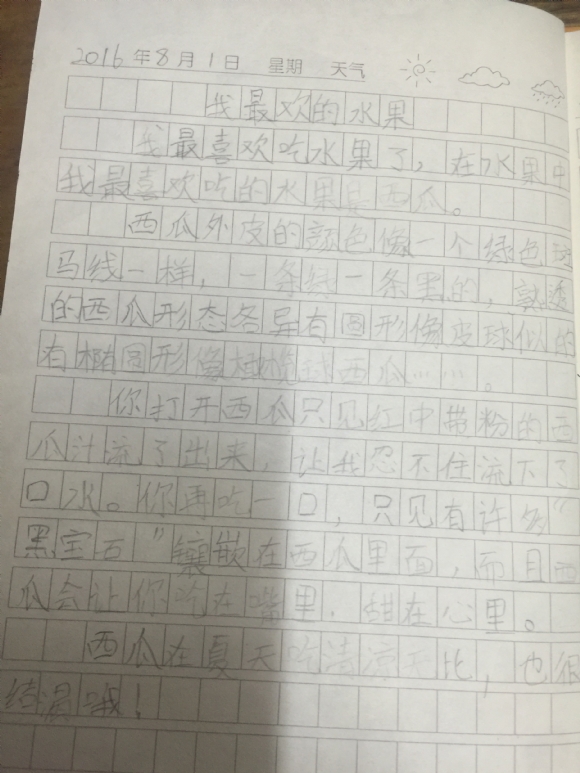 2016年8月1日 星期 天气
我最欢的水果
我最喜欢吃水果了，在水果中
我最喜欢吃的水果是西瓜。
西瓜外皮的颜色像一个绿色斑
马线一样，一条绿一条黑的，熟透
的西瓜形态各异有圆形像皮球似的
有椭圆形像橄榄球西瓜……。
你打开西瓜只见红中带粉的西
瓜汁流了出来，让我忍不住流下了
口水。你再吃一口，只见有许多"
黑宝石"镶嵌在西瓜里面，而且西
瓜会让你吃在嘴里．甜在心里。
西瓜在夏天吃清凉无比，也很
哦！